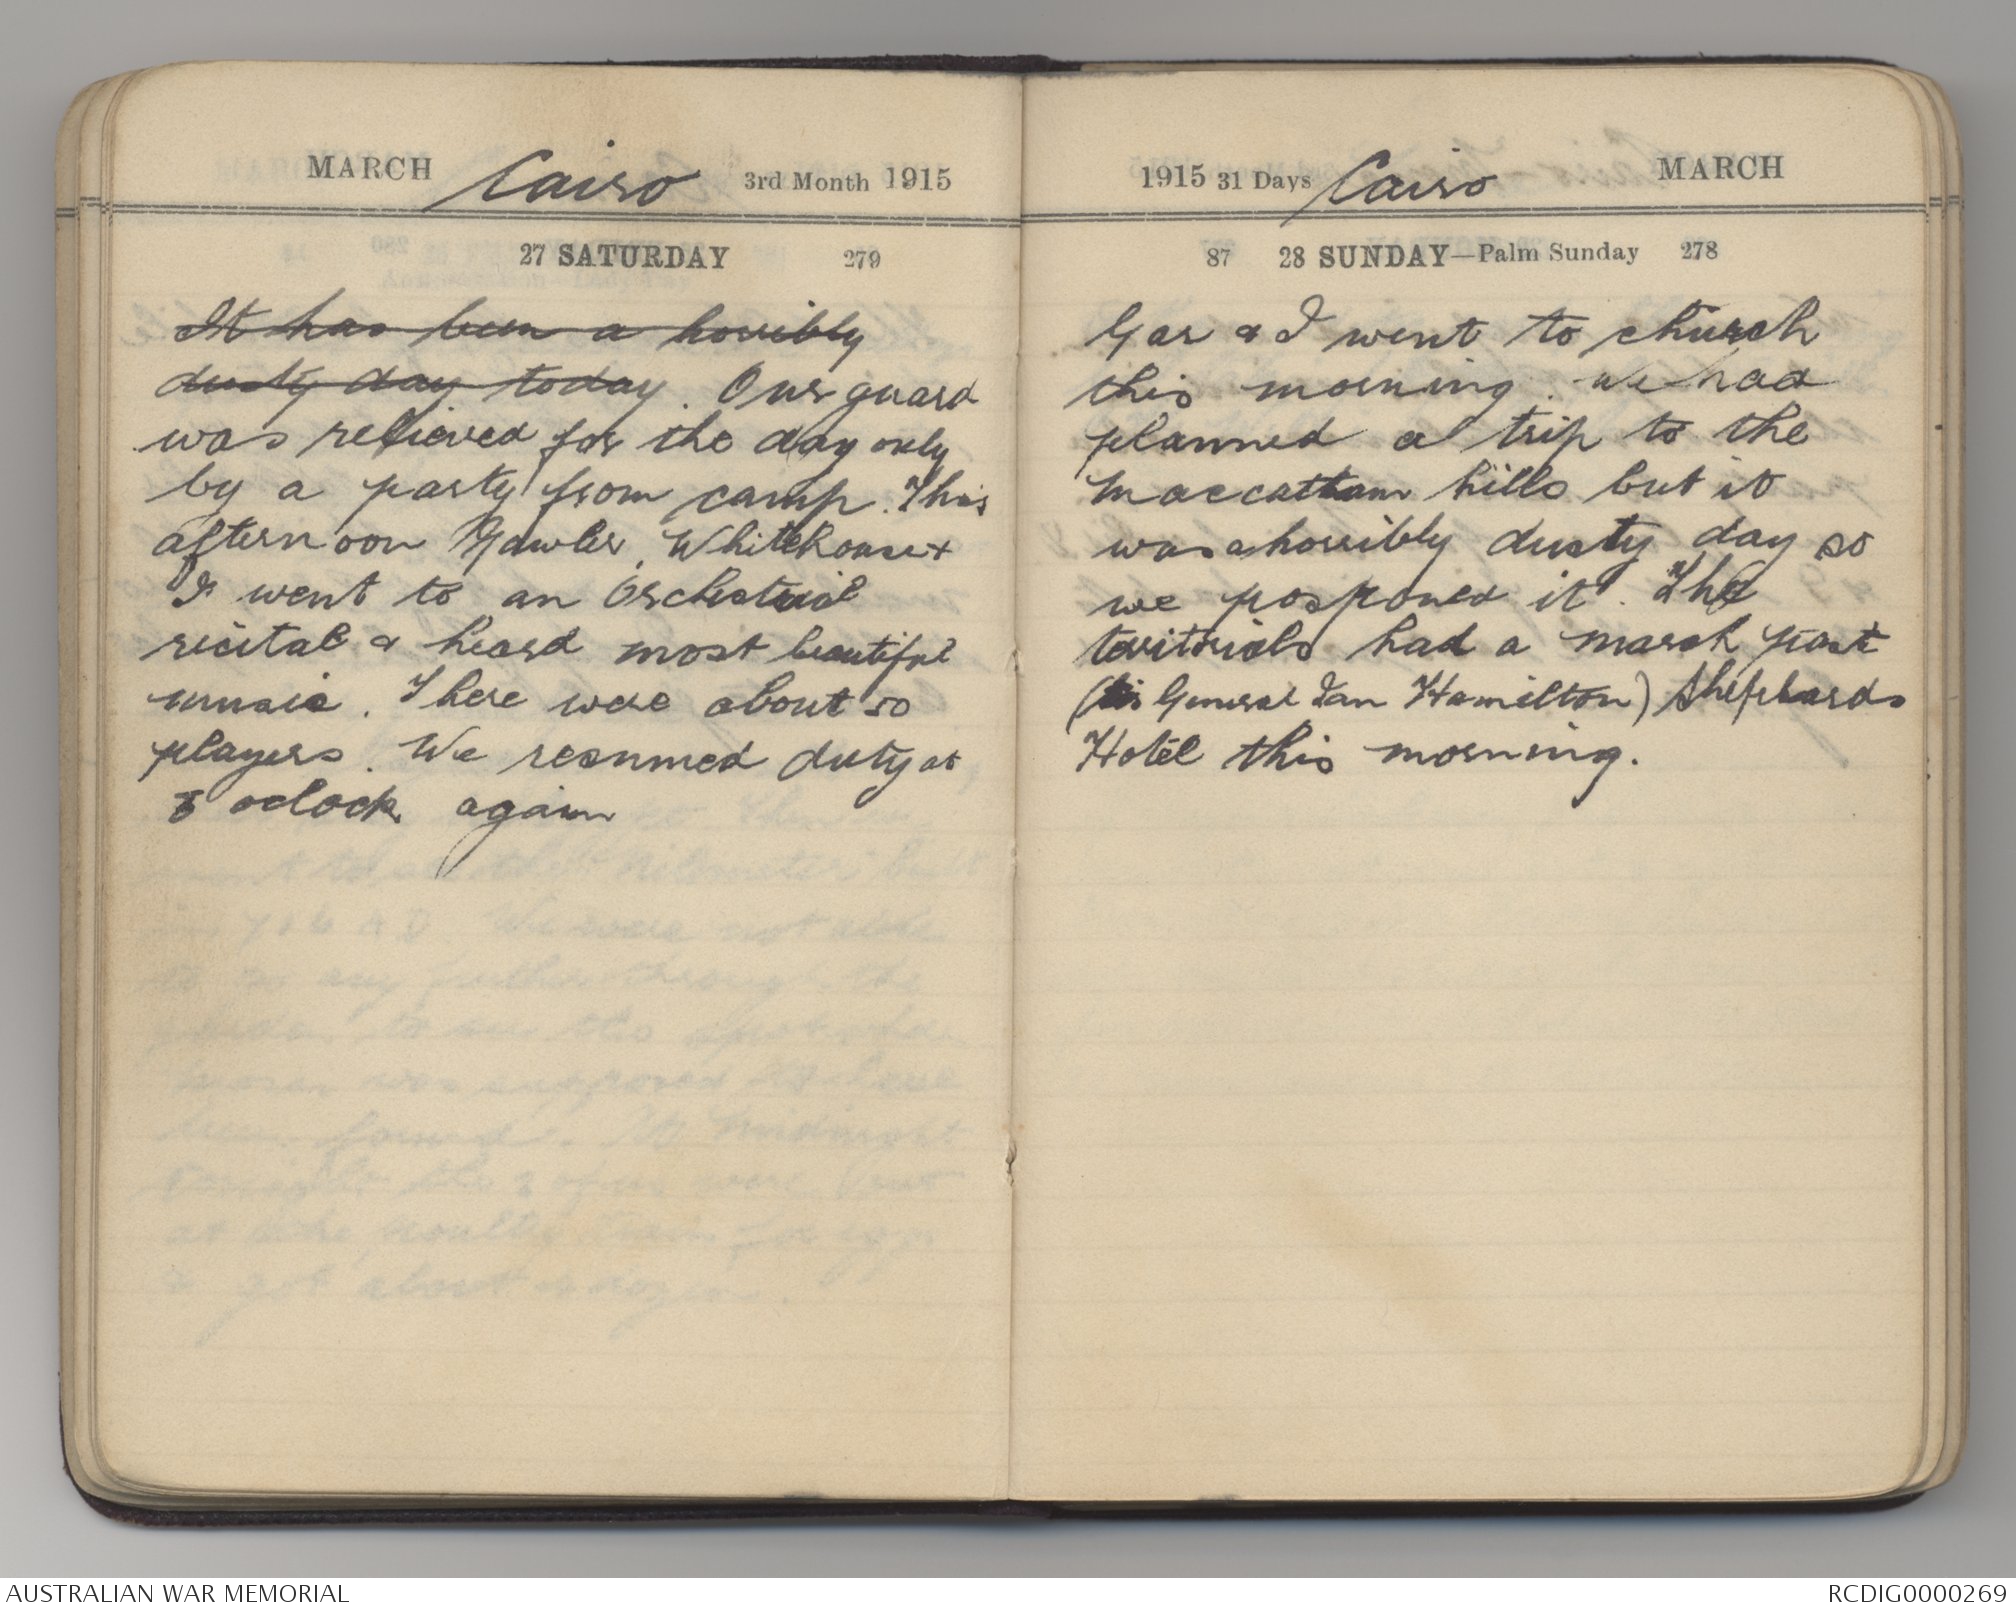 MARCH Cairo 3rd Month 1915
27 SATURDAY 279
It has been a horribly
dusty day today. Our guard
was relieved for the day only
by a party from camp. This
afternoon Gawler, Whitehouse &
I went to an Orchestrial
recital & heard most beautiful
music. There were about 50
players. We resumed duty at
oclock again
1915 31 Days Cairo MARCH
87 28 SUNDAY—Palm Sunday 278
Gar & I went to church
this morning. We had
planned a trip to the
Maccattam hills but it
was a horribly dusty day so
we posponed it. The
teritorials had a march past
(General Ian Hamilton) Shephards
Hotel this morning.
AUSTRALIAN WAR MEMORIAL
RCDIG0000269